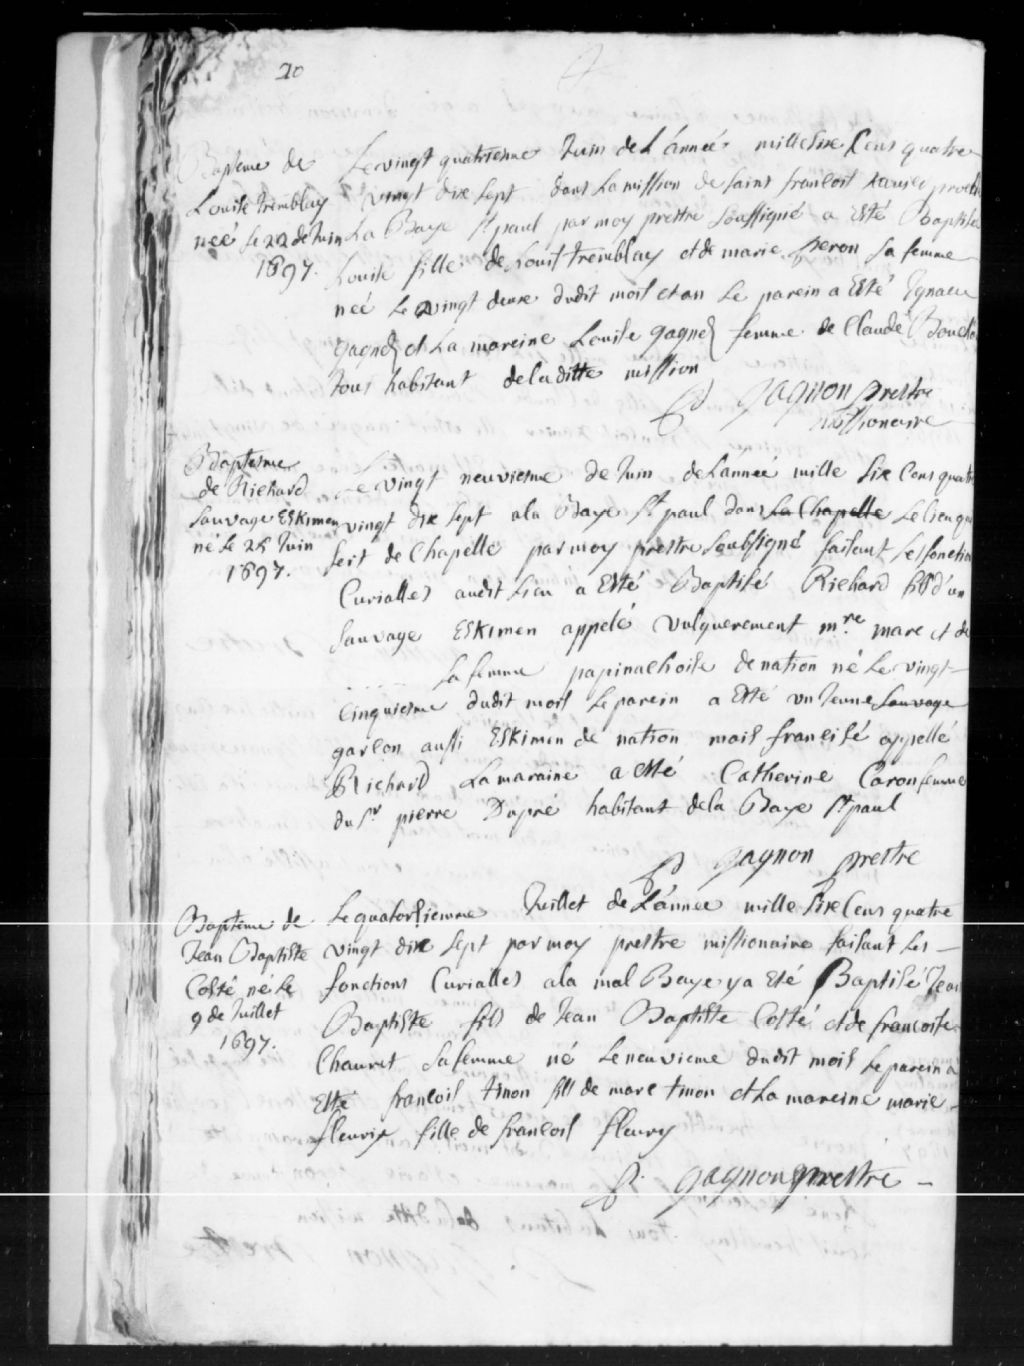 20
Bapteme de
Louise Tremblay
neé le 22 de Juin
1697.
Le vingt quatriesme Juin de L'année mille six Cens quatre
vingt dix sept dans La mission de saint francois xavier proche
La Baye st paul par moy prestre soussigné a Esté Baptisée
Louise fille de Louis tremblay et de marie peron sa femme
neé Le vingt deuxe dudit mois et an Le parein a Esté Ignace
gagné et La mareine Louise gagné femme de Claude Bouchar
tous habitant de laditte mission
P gagnon prestre
missionaire
Baptesme
de Richard
sauvage EsKimen
né Le 25 Juin
1697.
Le vingt neuviesme de Juin de Lanneé mille six Cens quatre
vingt dix sept a la Baye st paul dans La Chapelle Le lieu qui
sert de Chapelle par moy prestre soubsigné faisant les fonctions
Curialles audit Lieu a Esté Baptisé Richard fils d'un
sauvage EsKimen appelé vulguerement mre marc et de
sa femme papinachoise de nation né Le vingt
Cinquiesme dudit mois Le parein a Esté un Jeune sauvage
garson aussi EsKimen de nation mais francisé appellé
Richard La maraine a esté Catherine Caron femme
du sr pierre Dupré habitant de la Baye st paul
P gagnon prestre
Bapteme de
Jean Baptiste
Cotté né le
9 de Juillet
1697.
Le quatorsiemme Juillet de L'année mille six Cens quatre
vingt dix sept par moy prestre missionaire faisant les
fonctions Curialles a la mal Baye y a Eté Baptisé Jean
Baptiste fils de Jean Baptiste Cotté et de francoise
Chauret sa femme né Le neuvieme dudit mois Le parein a
Esté francois tinon fils de marc tinon et La mareine marie
fleurix fille de francois fleury
P. gagnon prestre